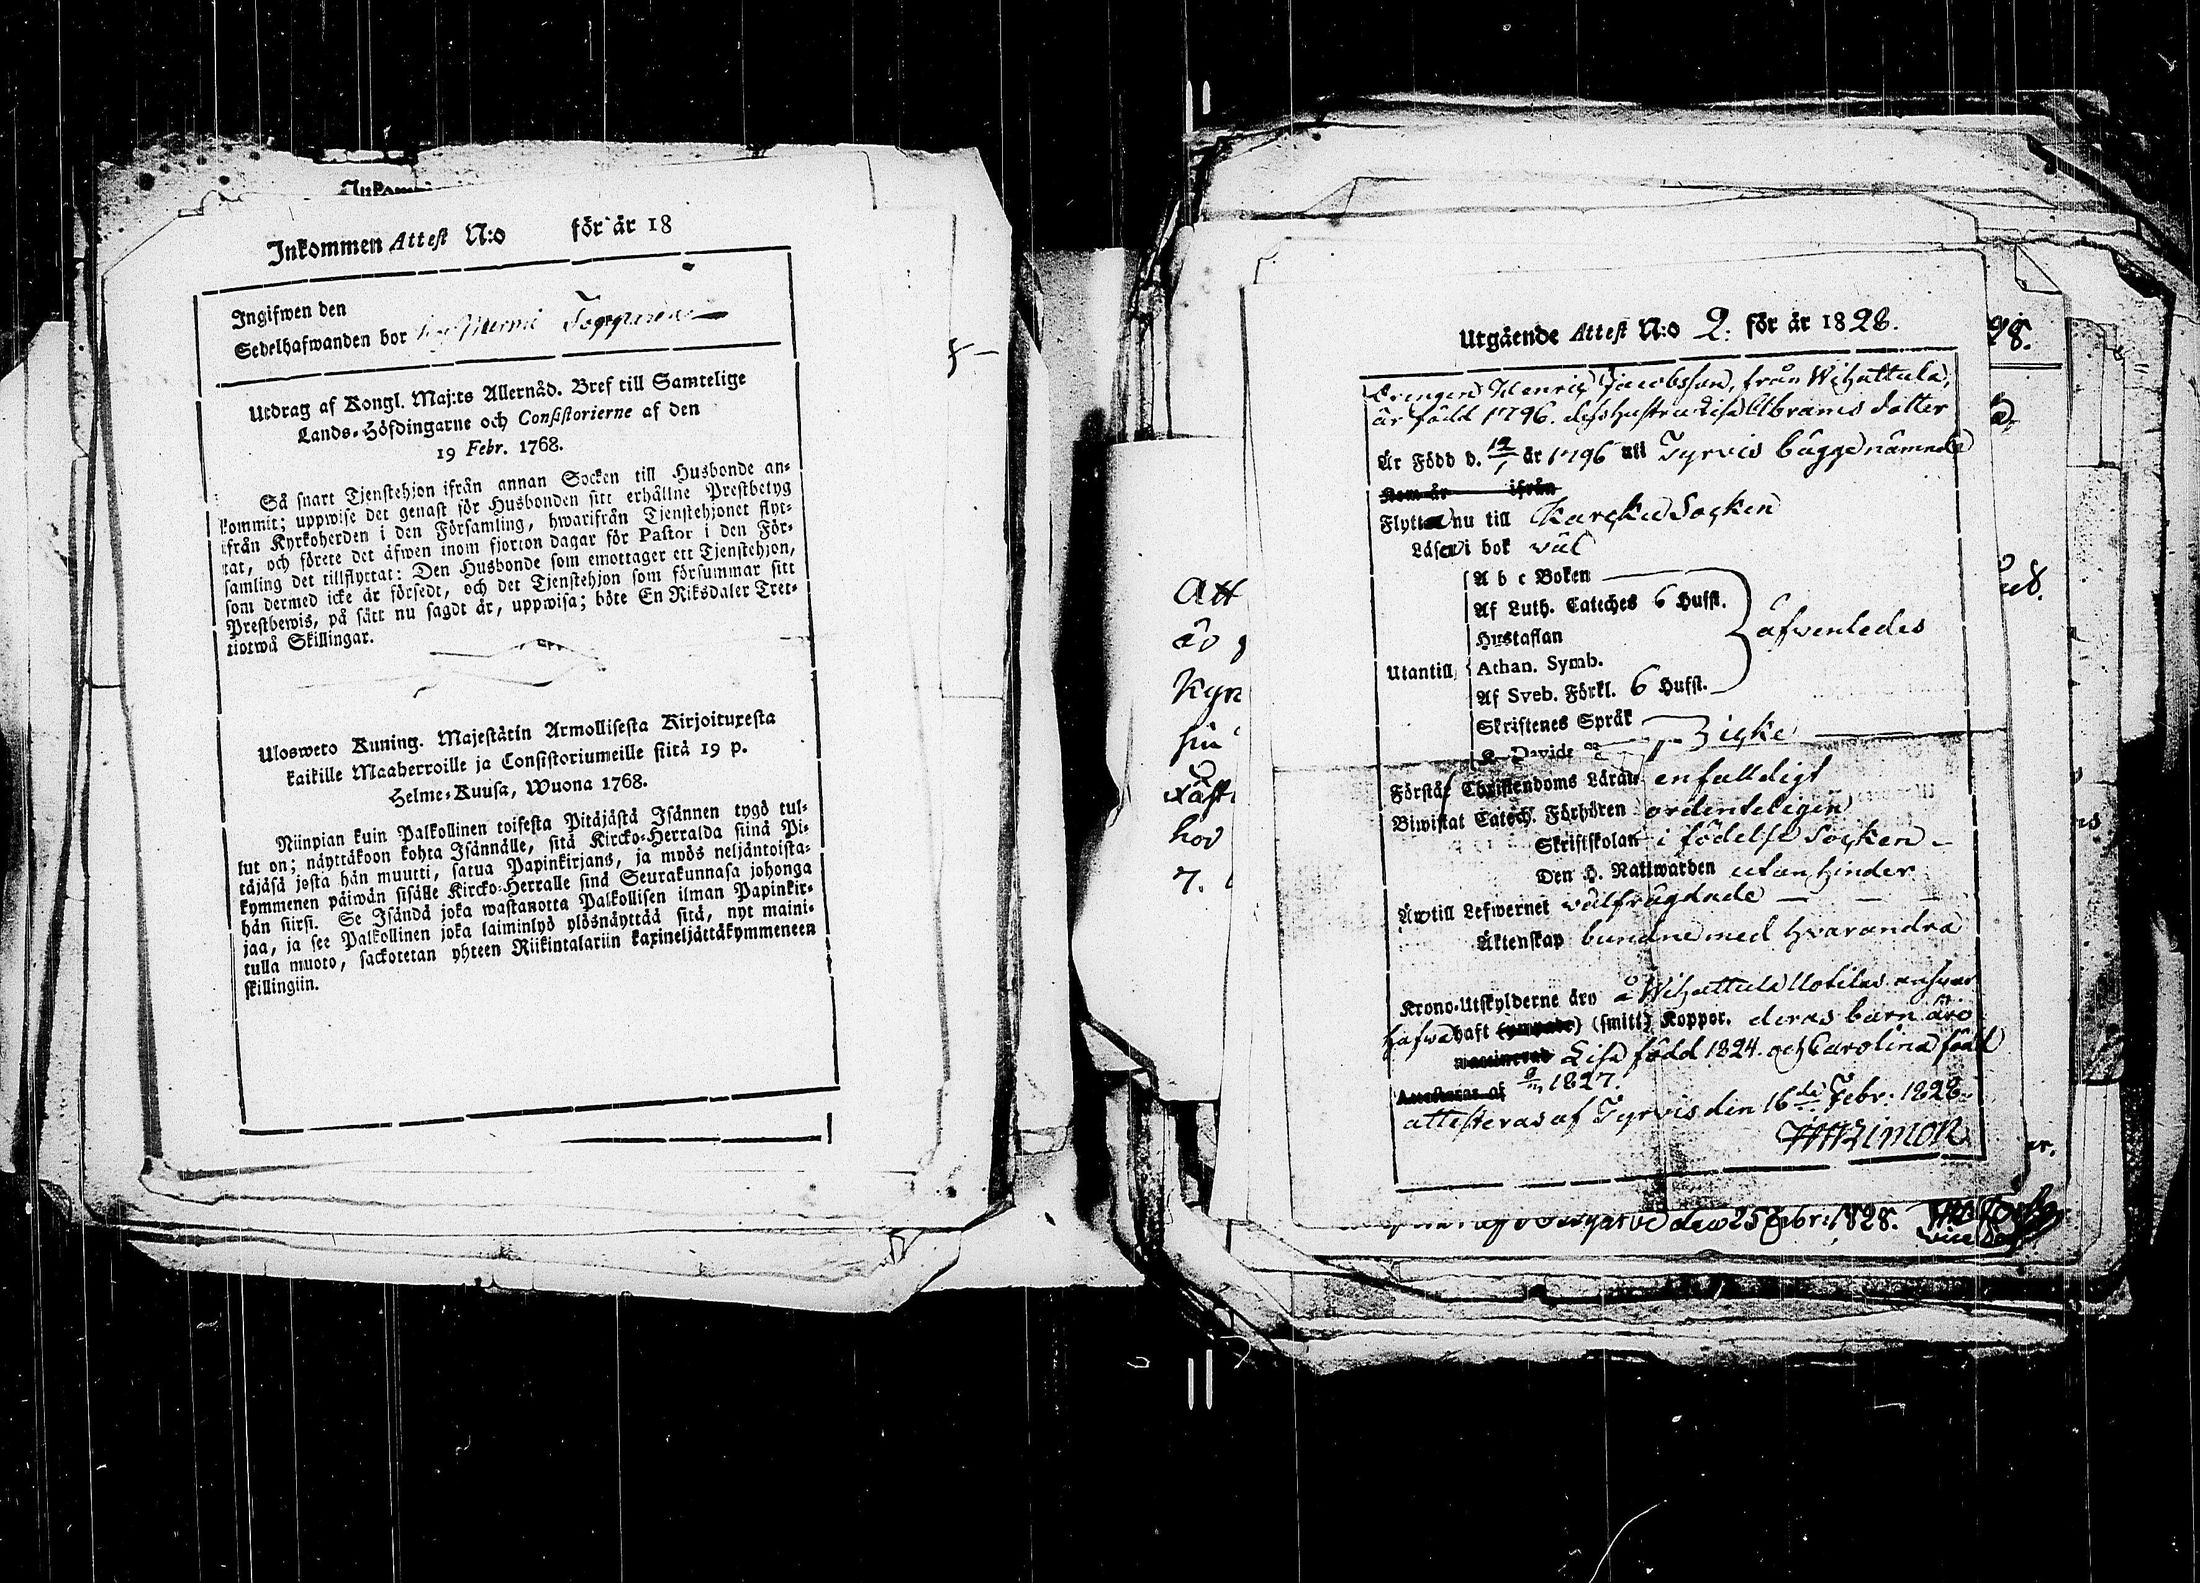 Inkommen Attest N:o för år 18
Ingifwen den
Sedelhafwanden bor
Utdrag af Kongl. Maj:ts Allernåd. Bref till Samtelige
Lands-Höfdingarne och Consistorierne af den
19 Febr. 1768.
Så snart Tjenstehjon ifrån annan Socken till Husbonde an-
kommit; uppwise det genast för Husbonden sitt erhållne Prestbetyg
ifrån Kyrkoherden i den Församling, hwarifrån Tjenstehjonet flyt-
tat, och förete det äfwen inom fjorton dagar för Pastor i den För-
samling det tillflyttat: Den Husbonde som emottager ett Tjenstehjon,
som dermed icke är försedt, och det Tjenstehjon som försummar sitt
Prestbewis, på sätt nu sagdt är, uppwisa; böte En Riksdaler Tret-
tiotwå Skillingar.
Ulosweto Kuning. Majestätin Armollisesta Kirjoituxesta
kaikille Maaherroille ja Consistoriumeille siitä 19 p.
Helme-Kuusa, Wuona 1768.
Niinpian kuin Palkollinen toisesta Pitäjästä Isännen tygö tul-
lut on; näyttäkoon kohta Isännälle, sitä Kircko-Herralda siinä Pi-
täjäsä josta hän muutti, saatua Papinkirjans, ja myös neljäntoista-
kymmenen päiwän sisälle Kircko-Herralle sinä Seurakunnasa johonga
hän siirsi. Se Isändä joka wastanotta Palkollisen ilman Papinkir-
jaa, ja see Palkollinen joka laiminlyö ylösnäyttää sitä, nyt maini-
tulla muoto, sackotetan yhteen Riikintalariin kaxineljättäkymmeneen
skillingiin.
Utgående Attest N:o 2. för år 1828.
Drengen Henric Jacobsson, från Wihattula,
är född 1796. dess hustru Lisa Abrams dotter
Är Född d. 12/1 år 1796 uti Tyrvis bägge nämnde
Kom år ifrån
Flytta nu till Karcku Socken
Läsa i bok wäl
A b c Boken
Af Luth. Cateches 6 Hufst.
Hustaflan
äfwenledes
Utantill
Athan. Symb.
Af Sveb. Förkl. 6 Hufst.
Skriftenes Språk
icke
K. Davids
Förstår Christendoms Läran enfalldigt
Biwistat Catech. Förhören ordenteligen
Skriftskolan i födelse Socken
Den H. Nattwarden utan hinder
Äro till Lefwernet wälfrägdade
Äktenskap bundne med hvarandra
Krono-Utskylderne äro å Wihattula Uotilas answar
Hafwa haft (ympade) (smitt) Koppor. deras barn äro
waccinerad Lisa född 1824. och Carolina född
Attesteras af 1827.
attesteras af Tyrvis den 16de Febr. 1828.
den 25 Febr. 1828.
Att
äro
Kyr
hov
7.